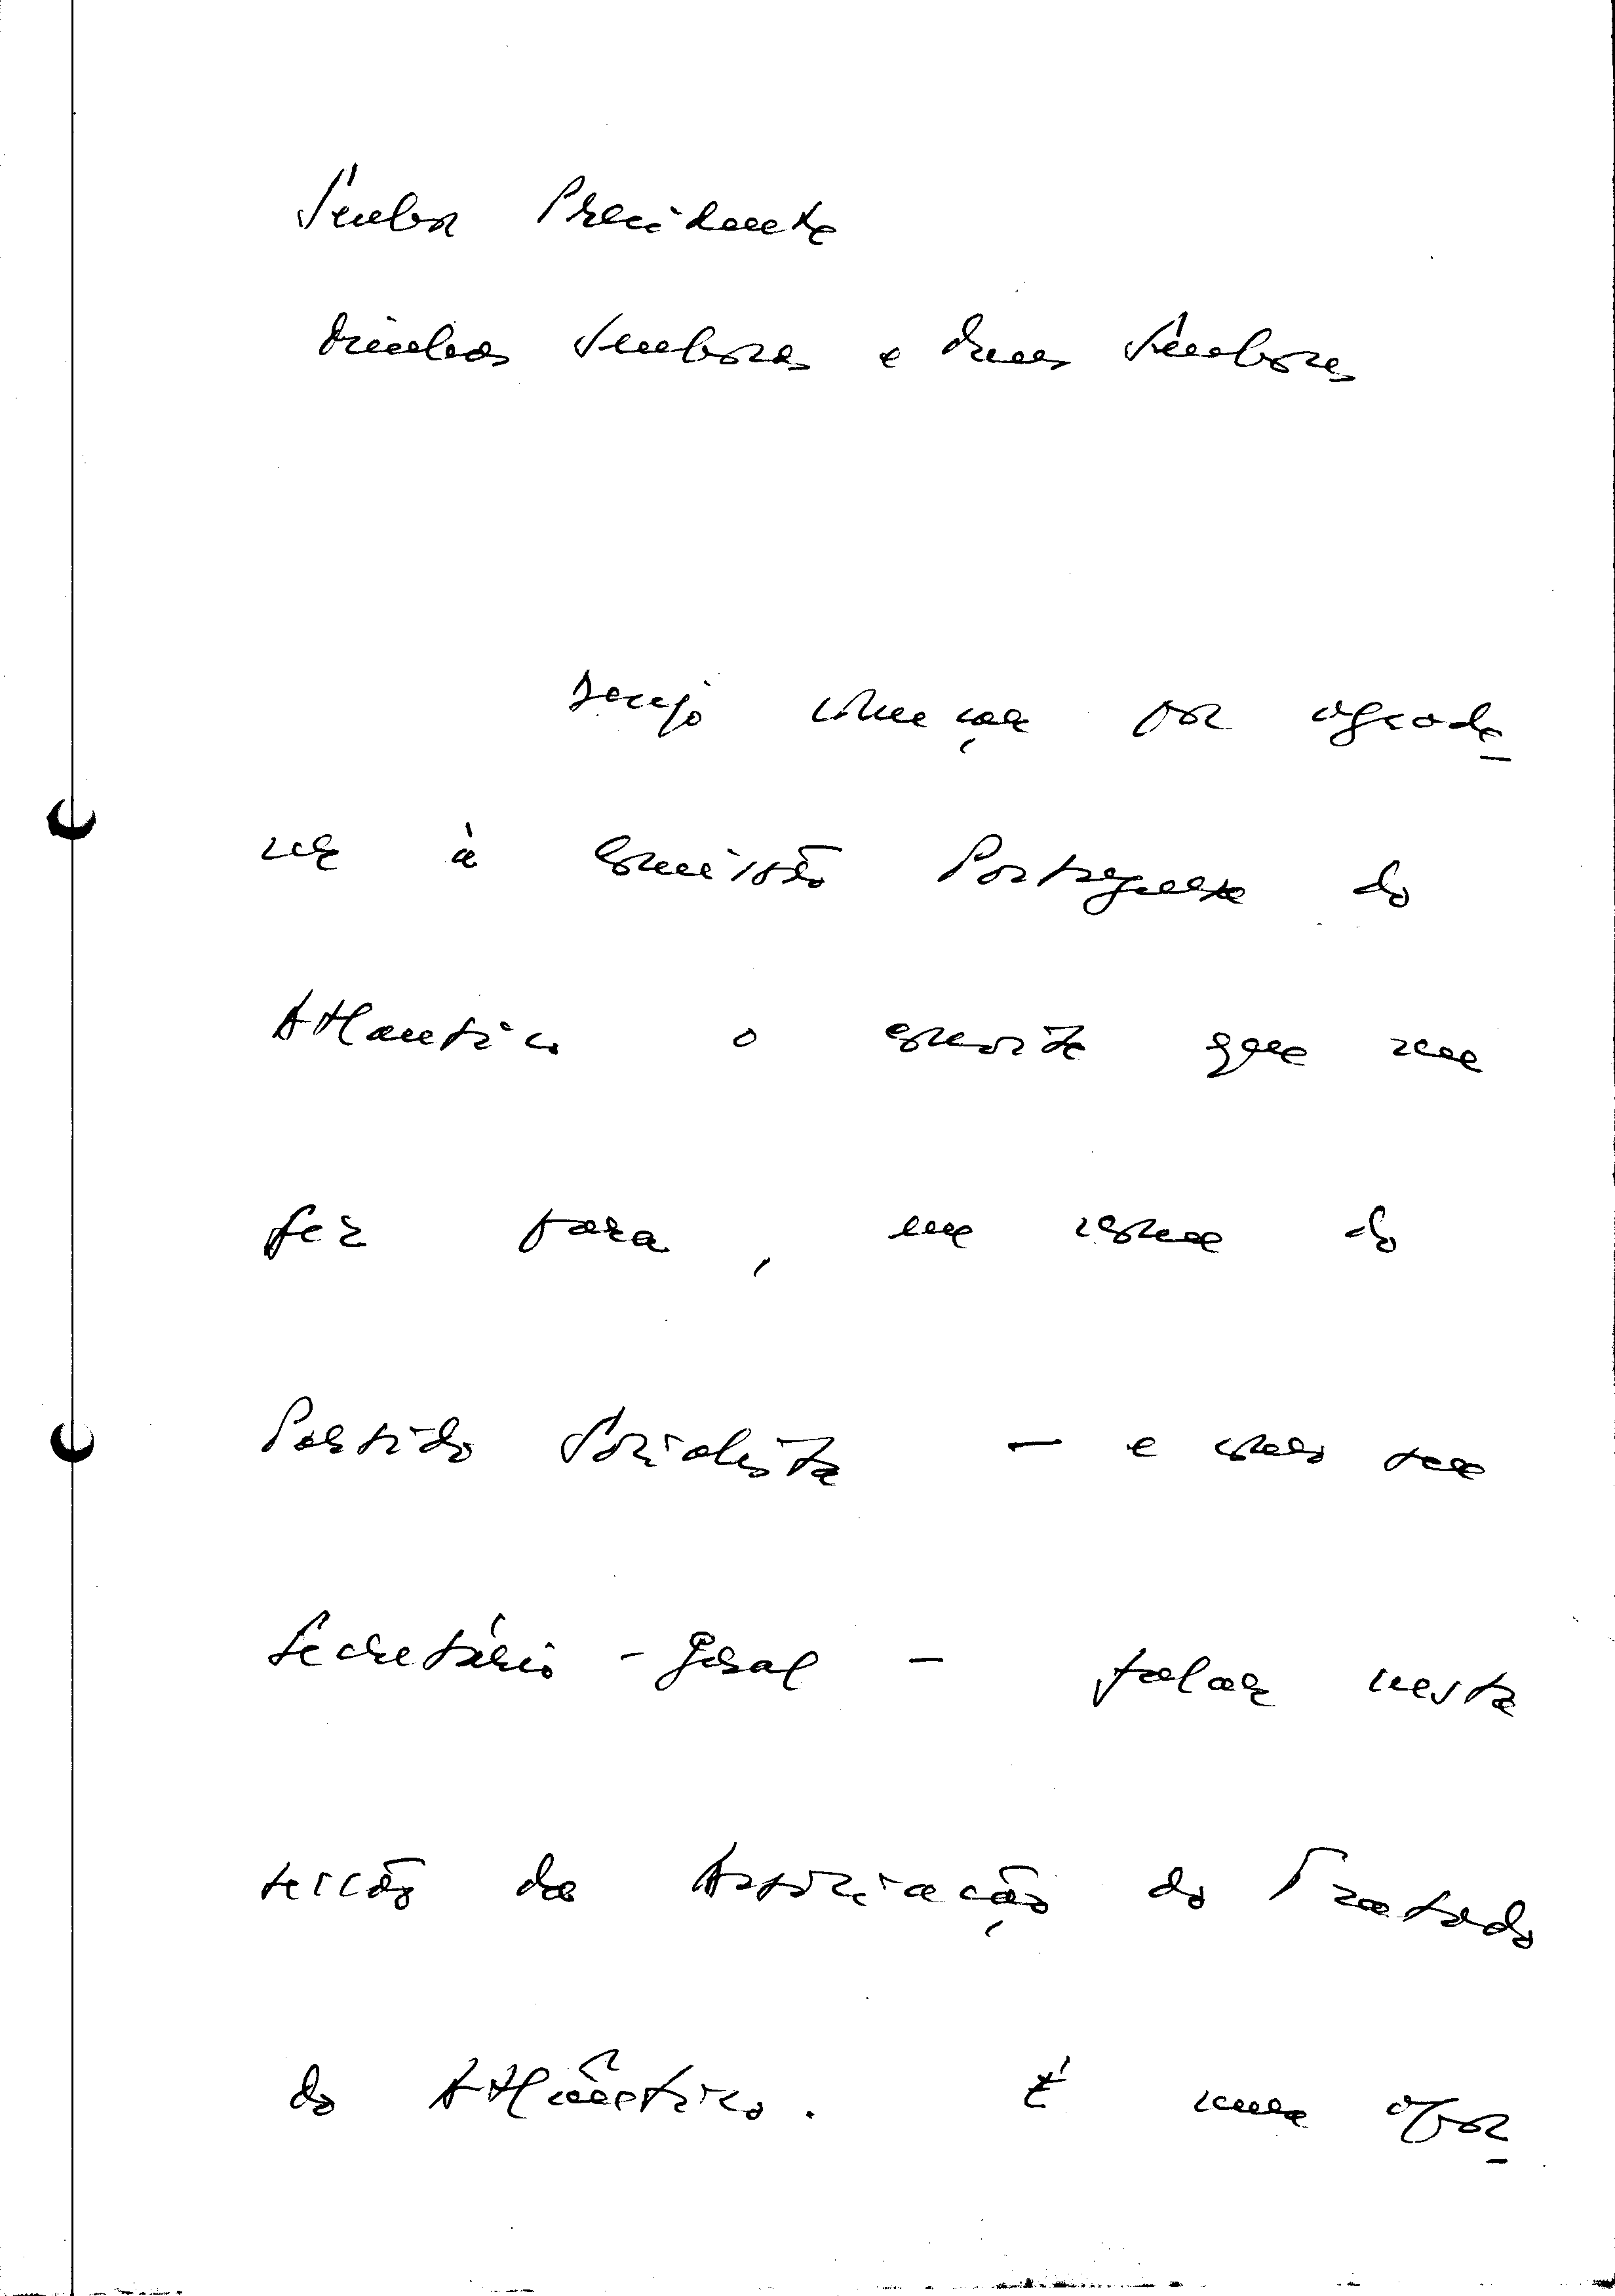 Senhor Presidente
Minhas Senhoras e Meus Senhores
Desejo começar por agrade
cer à Comissão Portuguesa do
Atlantico o convite que me
fez para, em nome do
Partido Socialista — e como seu
Secretário - Geral — falar nesta
secção da Associação do Tratado
do Atlântico. É uma opor